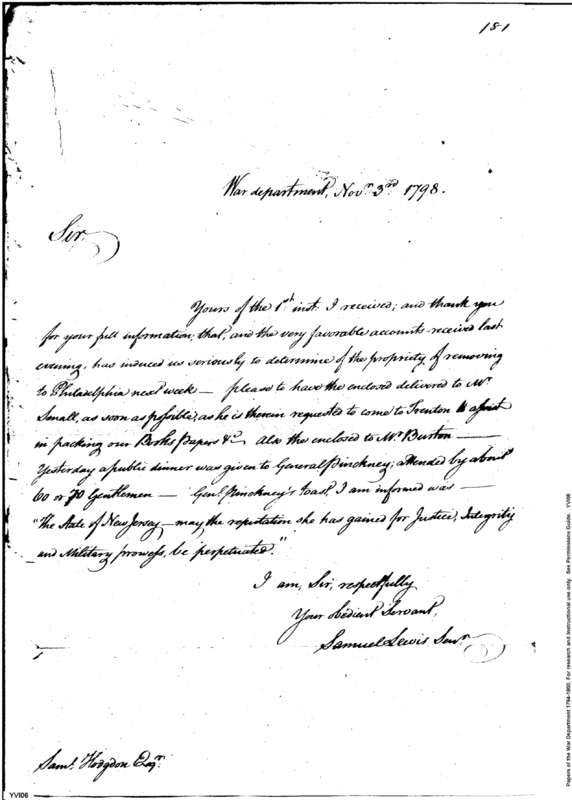 181
War department, Novr. 3rd 1798.
Sir,
Yours of the 1st inst. I received; and thank you
for your full information; that, and the very favorable accounts received last
evening, has induced us seriously to determine of the propriety of removing
to Philadelphia next week — please to have the enclosed delivered to Mr.
Small, as soon as possible, as he is therein requested to come to Trenton to assist
in packing our Books Papers &c. Also the enclosed to Mr. Burton —
Yesterday a public dinner was given to General Pinckney; attended by about
60 or 70 Gentlemen — Genl. Pinckney's toast, I am informed was —
"The State of New Jersey — may the reputation she has gained for Justice, Integrity
and Military prowess, be perpetuated."
I am, Sir, respectfully
Your obedient Servant,
Samuel Lewis Senr.
Saml. Hodgdon Esqr.
YVI06
Papers of the War Department 1784-1800. For research and instructional use only. See Permissions Guide. YVI06